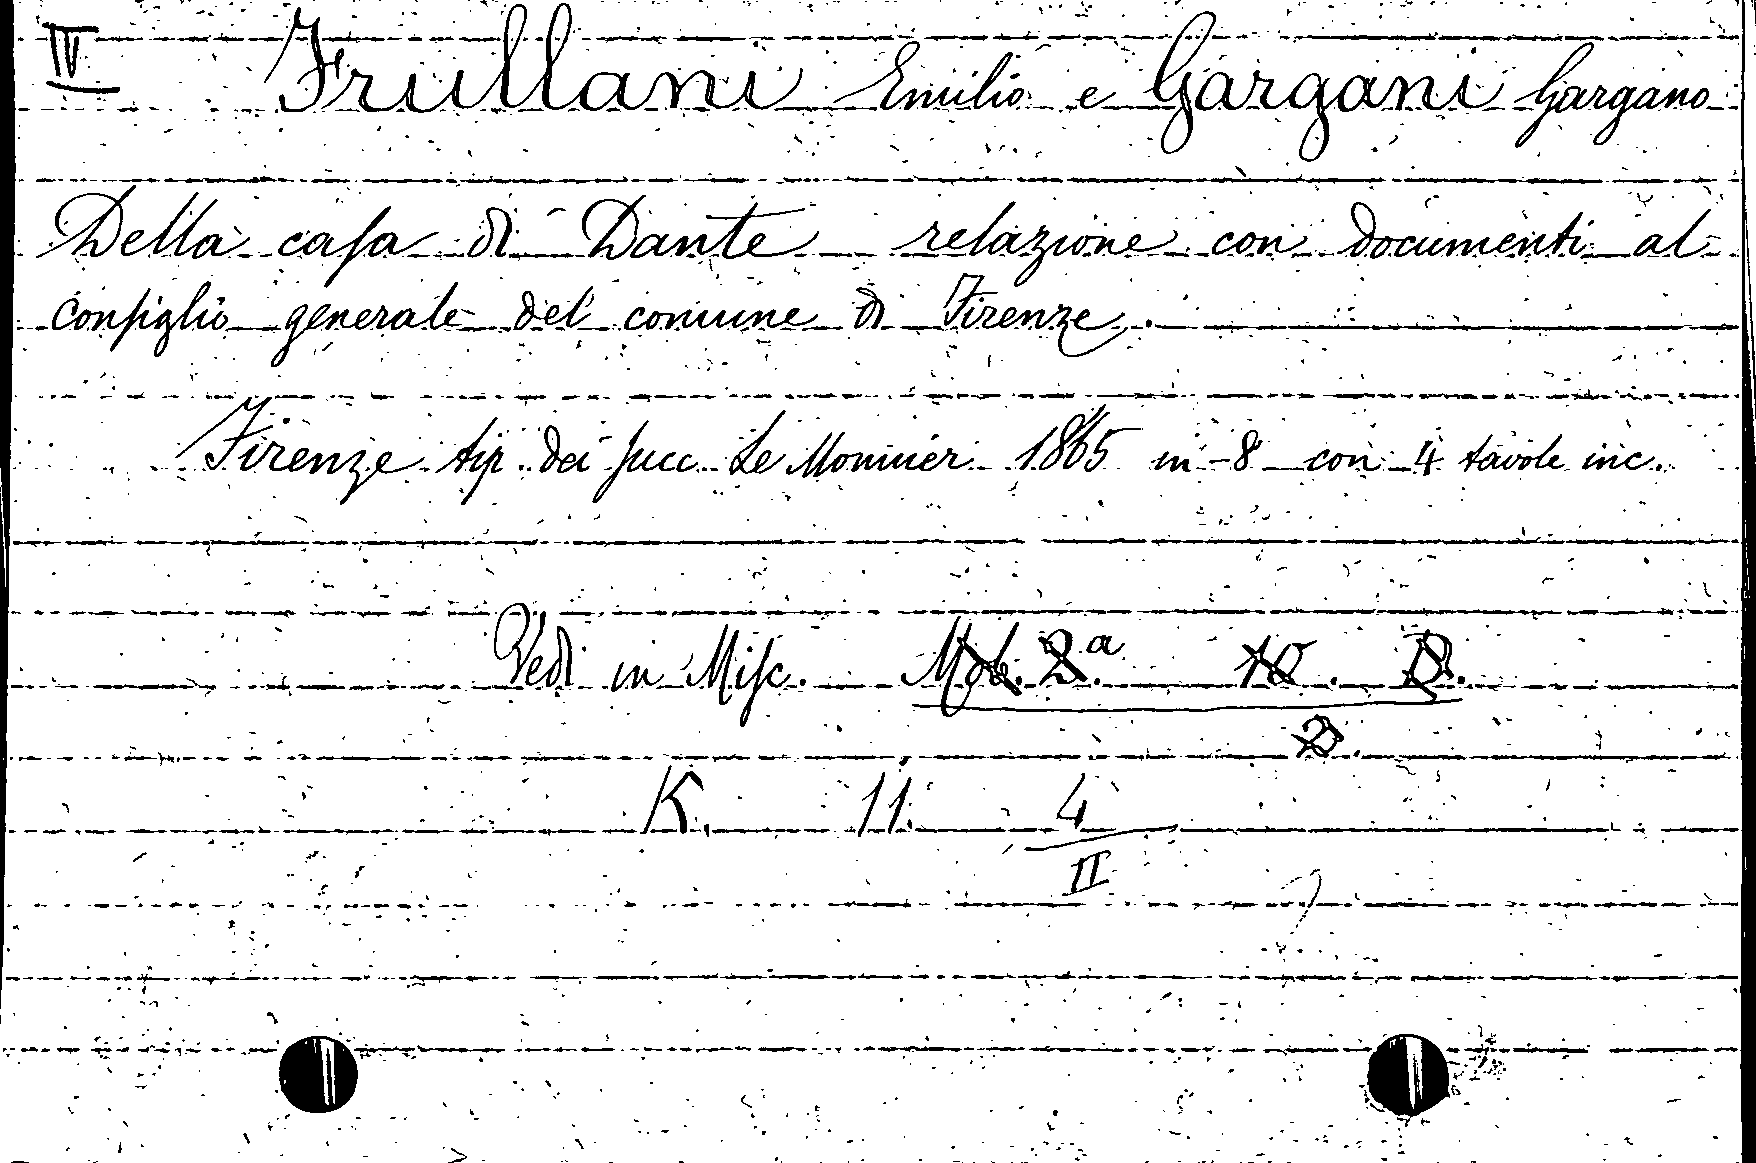 IV Frullani Emilio e Gargani Gargano
Della casa di Dante relazione con documenti al
consiglio generale del comune di Firenze.
Firenze tip. dei succ. Le Monnier 1865 in-8 con 4 tavole inc.
Vedi in Misc. Mob. 2.a 10. D.
K. 11. 4
II